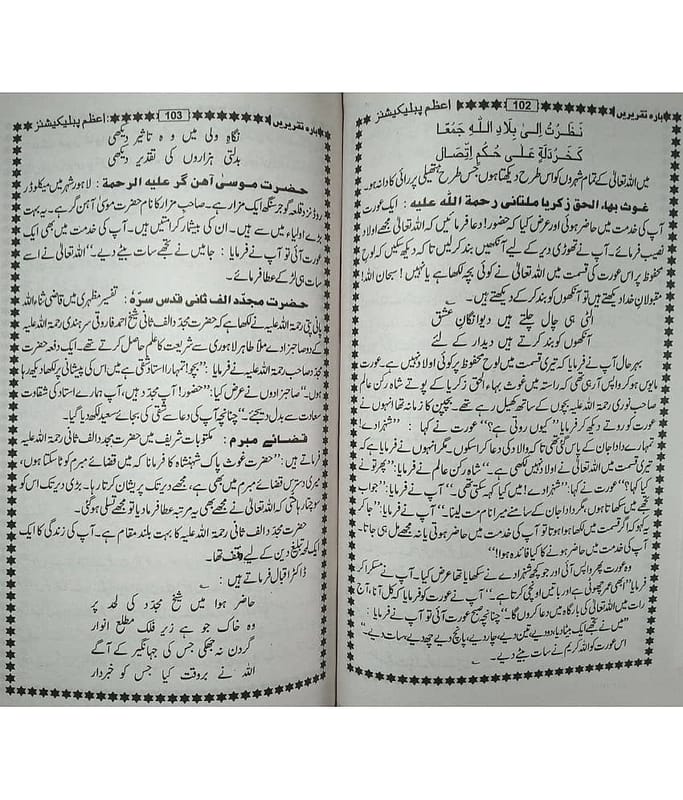 بارہ تقریریں ★★★★★★★ 102 ★★★★ اعظم پبلیکیشنز
نَظَرْتُ اِلیٰ بِلَادِ اللّٰہِ جَمْعًا
کَخَرْدَلَۃٍ عَلٰی حُکْمِ اتِّصَالِ
میں اللہ تعالیٰ کے تمام شہروں کو اس طرح دیکھتا ہوں جس طرح ہتھیلی پر رائی کا دانہ ہو۔
غوث بہاء الحق زکریا ملتانی رحمۃ اللہ علیہ : ایک عورت
آپ کی خدمت میں حاضر ہوئی اور عرض کیا کہ حضور! دعا فرمائیں کہ اللہ تعالیٰ مجھے اولاد
نصیب فرمائے۔ آپ نے تھوڑی دیر کے لیے آنکھیں بند کر لیں تاکہ دیکھ سکیں کہ لوح
محفوظ پر اس عورت کی قسمت میں اللہ تعالیٰ نے کوئی بچہ لکھا ہے یا نہیں! سبحان اللہ!
مقبولانِ خدا دیکھتے ہیں تو آنکھوں کو بند کر کے دیکھتے ہیں۔
الٹی ہی چال چلتے ہیں دیوانگانِ عشق
آنکھوں کو بند کرتے ہیں دیدار کے لئے
بہر حال آپ نے فرمایا کہ تیری قسمت میں لوح محفوظ پر کوئی اولاد نہیں ہے۔ عورت
مایوس ہو کر واپس آ رہی تھی کہ راستہ میں غوث بہاء الحق زکریا کے پوتے شاہ رکن عالم
صاحب نوری رحمۃ اللہ علیہ بچوں کے ساتھ کھیل رہے تھے۔ بچپن کا زمانہ تھا انہوں نے
عورت کو روتے دیکھ کر فرمایا ’’کیوں روتی ہے؟‘‘ عورت نے کہا : ’’شہزادے!
تمہارے دادا جان کے پاس گئی تھی تاکہ اولاد کی دعا کرا سکوں۔ مگر انہوں نے فرمایا ہے کہ
تیری قسمت میں اللہ تعالیٰ نے اولاد نہیں لکھی ہے۔‘‘ شاہ رکن عالم نے فرمایا: ’’پھر تو نے
کیا کہا؟‘‘ عورت نے کہا: ’’شہزادے! میں کیا کہہ سکتی تھی۔‘‘ آپ نے فرمایا: ’’جواب
تجھے میں سکھاتا ہوں، مگر دادا جان کے سامنے میرا نام مت لینا۔‘‘ آپ نے فرمایا: ’’جا کر
یہ کہو کہ اگر قسمت میں لکھا ہوا ہوتا تو آپ کی خدمت میں حاضر ہوتی یا نہ مجھے مل ہی جاتا۔
آپ کی خدمت میں حاضر ہونے کا کیا فائدہ ہوا!‘‘
وہ عورت پھر واپس آئی اور جو کچھ شہزادے نے سکھایا تھا عرض کیا۔ آپ نے مسکرا کر
فرمایا ’’ابھی عمر چھوٹی ہے اور باتیں اونچی کرتا ہے۔‘‘ آپ نے عورت کو فرمایا کہ کل آنا، آج
رات میں اللہ تعالیٰ کی بارگاہ میں دعا کروں گا۔‘‘ چنانچہ صبح عورت آئی تو آپ نے فرمایا :
’’میں نے تجھے ایک بیٹا دیا، دو دیے، تین دیے، چار دیے، پانچ دیے، چھ دیے، سات دیے۔‘‘
اس عورت کو اللہ کریم نے سات بیٹے دیے۔
بارہ تقریریں ★★★★★★★ 103 ★★★★ اعظم پبلیکیشنز
نگاہِ ولی میں وہ تاثیر دیکھی
بدلتی ہزاروں کی تقدیر دیکھی
حضرت موسیٰ آھن گر علیہ الرحمۃ : لاہور شہر میں میکلوڈ
روڈ نزد قلعہ گوجر سنگھ ایک مزار ہے۔ صاحبِ مزار کا نام حضرت موسیٰ آہن گر ہے۔ یہ بہت
بڑے اولیاء میں سے ہیں۔ ان کی بیشمار کراماتیں ہیں۔ آپ کی خدمت میں بھی ایک
عورت آئی تو آپ نے فرمایا : جا میں نے تجھے سات بیٹے دیے۔‘‘ اللہ تعالیٰ نے اسے
سات ہی لڑکے عطا فرمائے۔
حضرت مجدد الف ثانی قدس سرہ : تفسیر مظہری میں قاضی ثناء اللہ
پانی پتی رحمۃ اللہ علیہ نے لکھا ہے کہ حضرت مجدد الف ثانی شیخ احمد فاروقی سرہندی رحمۃ اللہ علیہ
کے دو صاحبزادے ملا طاہر لاہوری سے شریعت کا علم حاصل کرتے تھے۔ ایک دفعہ حضرت
مجدد صاحب رحمۃ اللہ علیہ نے فرمایا: ’’بچو! تمہارا استاد شقی ہے میں اس کی پیشانی پر لکھا دیکھ رہا
ہوں۔‘‘ صاحبزادوں نے عرض کیا: ’’حضور! آپ مجدد ہیں، آپ ہمارے استاد کی شقاوت
سعادت سے بدل دیجئے۔‘‘ چنانچہ آپ کی دعا سے شقی کی بجائے سعید لکھ دیا گیا۔
قضائے مبرم : مکتوبات شریف میں حضرت مجدد الف ثانی رحمۃ اللہ علیہ
فرماتے ہیں: ’’حضرت غوث پاک شہنشاہ کا فرمانا کہ میں قضائے مبرم کو ٹال سکتا ہوں،
میری دسترس قضائے مبرم میں بھی ہے، مجھے دیر تک پریشان کرتا رہا۔ بڑی دیر تک اس کو
سوچتا رہا حتی کہ اللہ تعالیٰ نے مجھے بھی یہ مرتبہ عطا فرما دیا تو مجھے تسلی ہو گئی۔
حضرت مجدد الف ثانی رحمۃ اللہ علیہ کا بہت بلند مقام ہے۔ آپ کی زندگی کا ایک
ایک لمحہ تبلیغِ دین کے لیے وقف تھا۔
ڈاکٹر اقبال فرماتے ہیں :
حاضر ہوا میں شیخِ مجدد کی لحد پر
وہ خاک جو ہے زیرِ فلک مطلعِ انوار
گردن نہ جھکی جس کی جہانگیر کے آگے
اللہ نے بروقت کیا جس کو خبردار